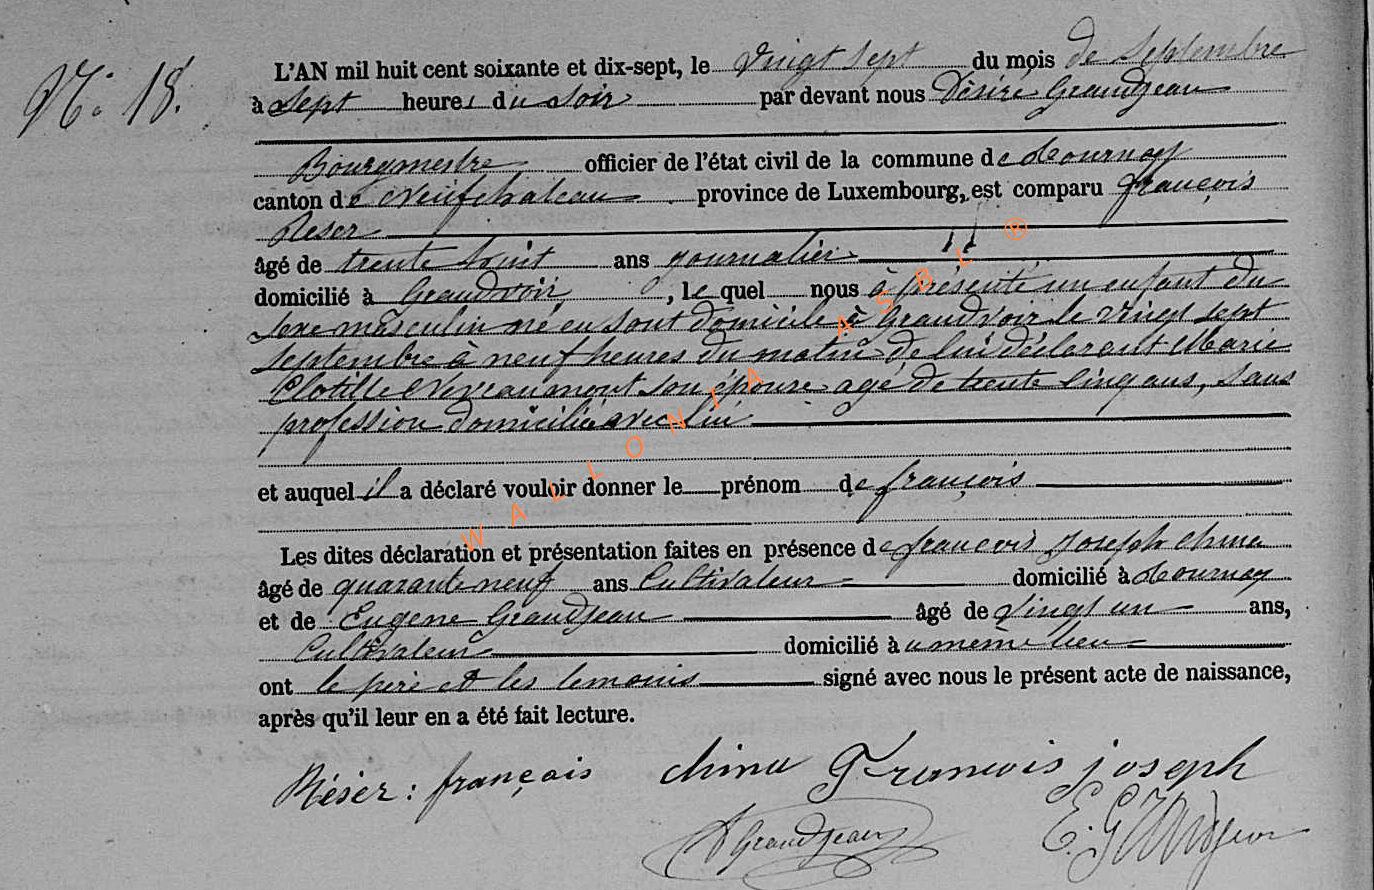 N° 18.
L'AN mil huit cent soixante et dix-sept, le vingt sept du mois de septembre
à sept heures du soir par devant nous Désiré Grandjean
Bourgmestre officier de l'état civil de la commune de Tournay
canton de Neufchateau province de Luxembourg, est comparu françois
Reser
âgé de trente huit ans journalier
domicilié à Grandvoir, le quel nous à présenté un enfant du
sexe masculin né en sont domicile à grandvoir le vingt sept
septembre à neuf heures du matin de lui déclarant et Marie
Clotilde Noveaumont son épouse agé de trente cinq ans, sans
profession domicilié avec lui
et auquel il a déclaré vouloir donner le prénom de françois
Les dites déclaration et présentation faites en présence de françois Joseph chinu
âgé de quarante neuf ans Cultivateur domicilié à Tournay
et de Eugène Grandjean âgé de vingt un ans,
Cultivateur domicilié au même lieu
ont le père et les temouis signé avec nous le présent acte de naissance,
après qu'il leur en a été fait lecture.
Réser : françois chinu François joseph
D Grandjean E. Grandjean
WALLONIA ASBL ®